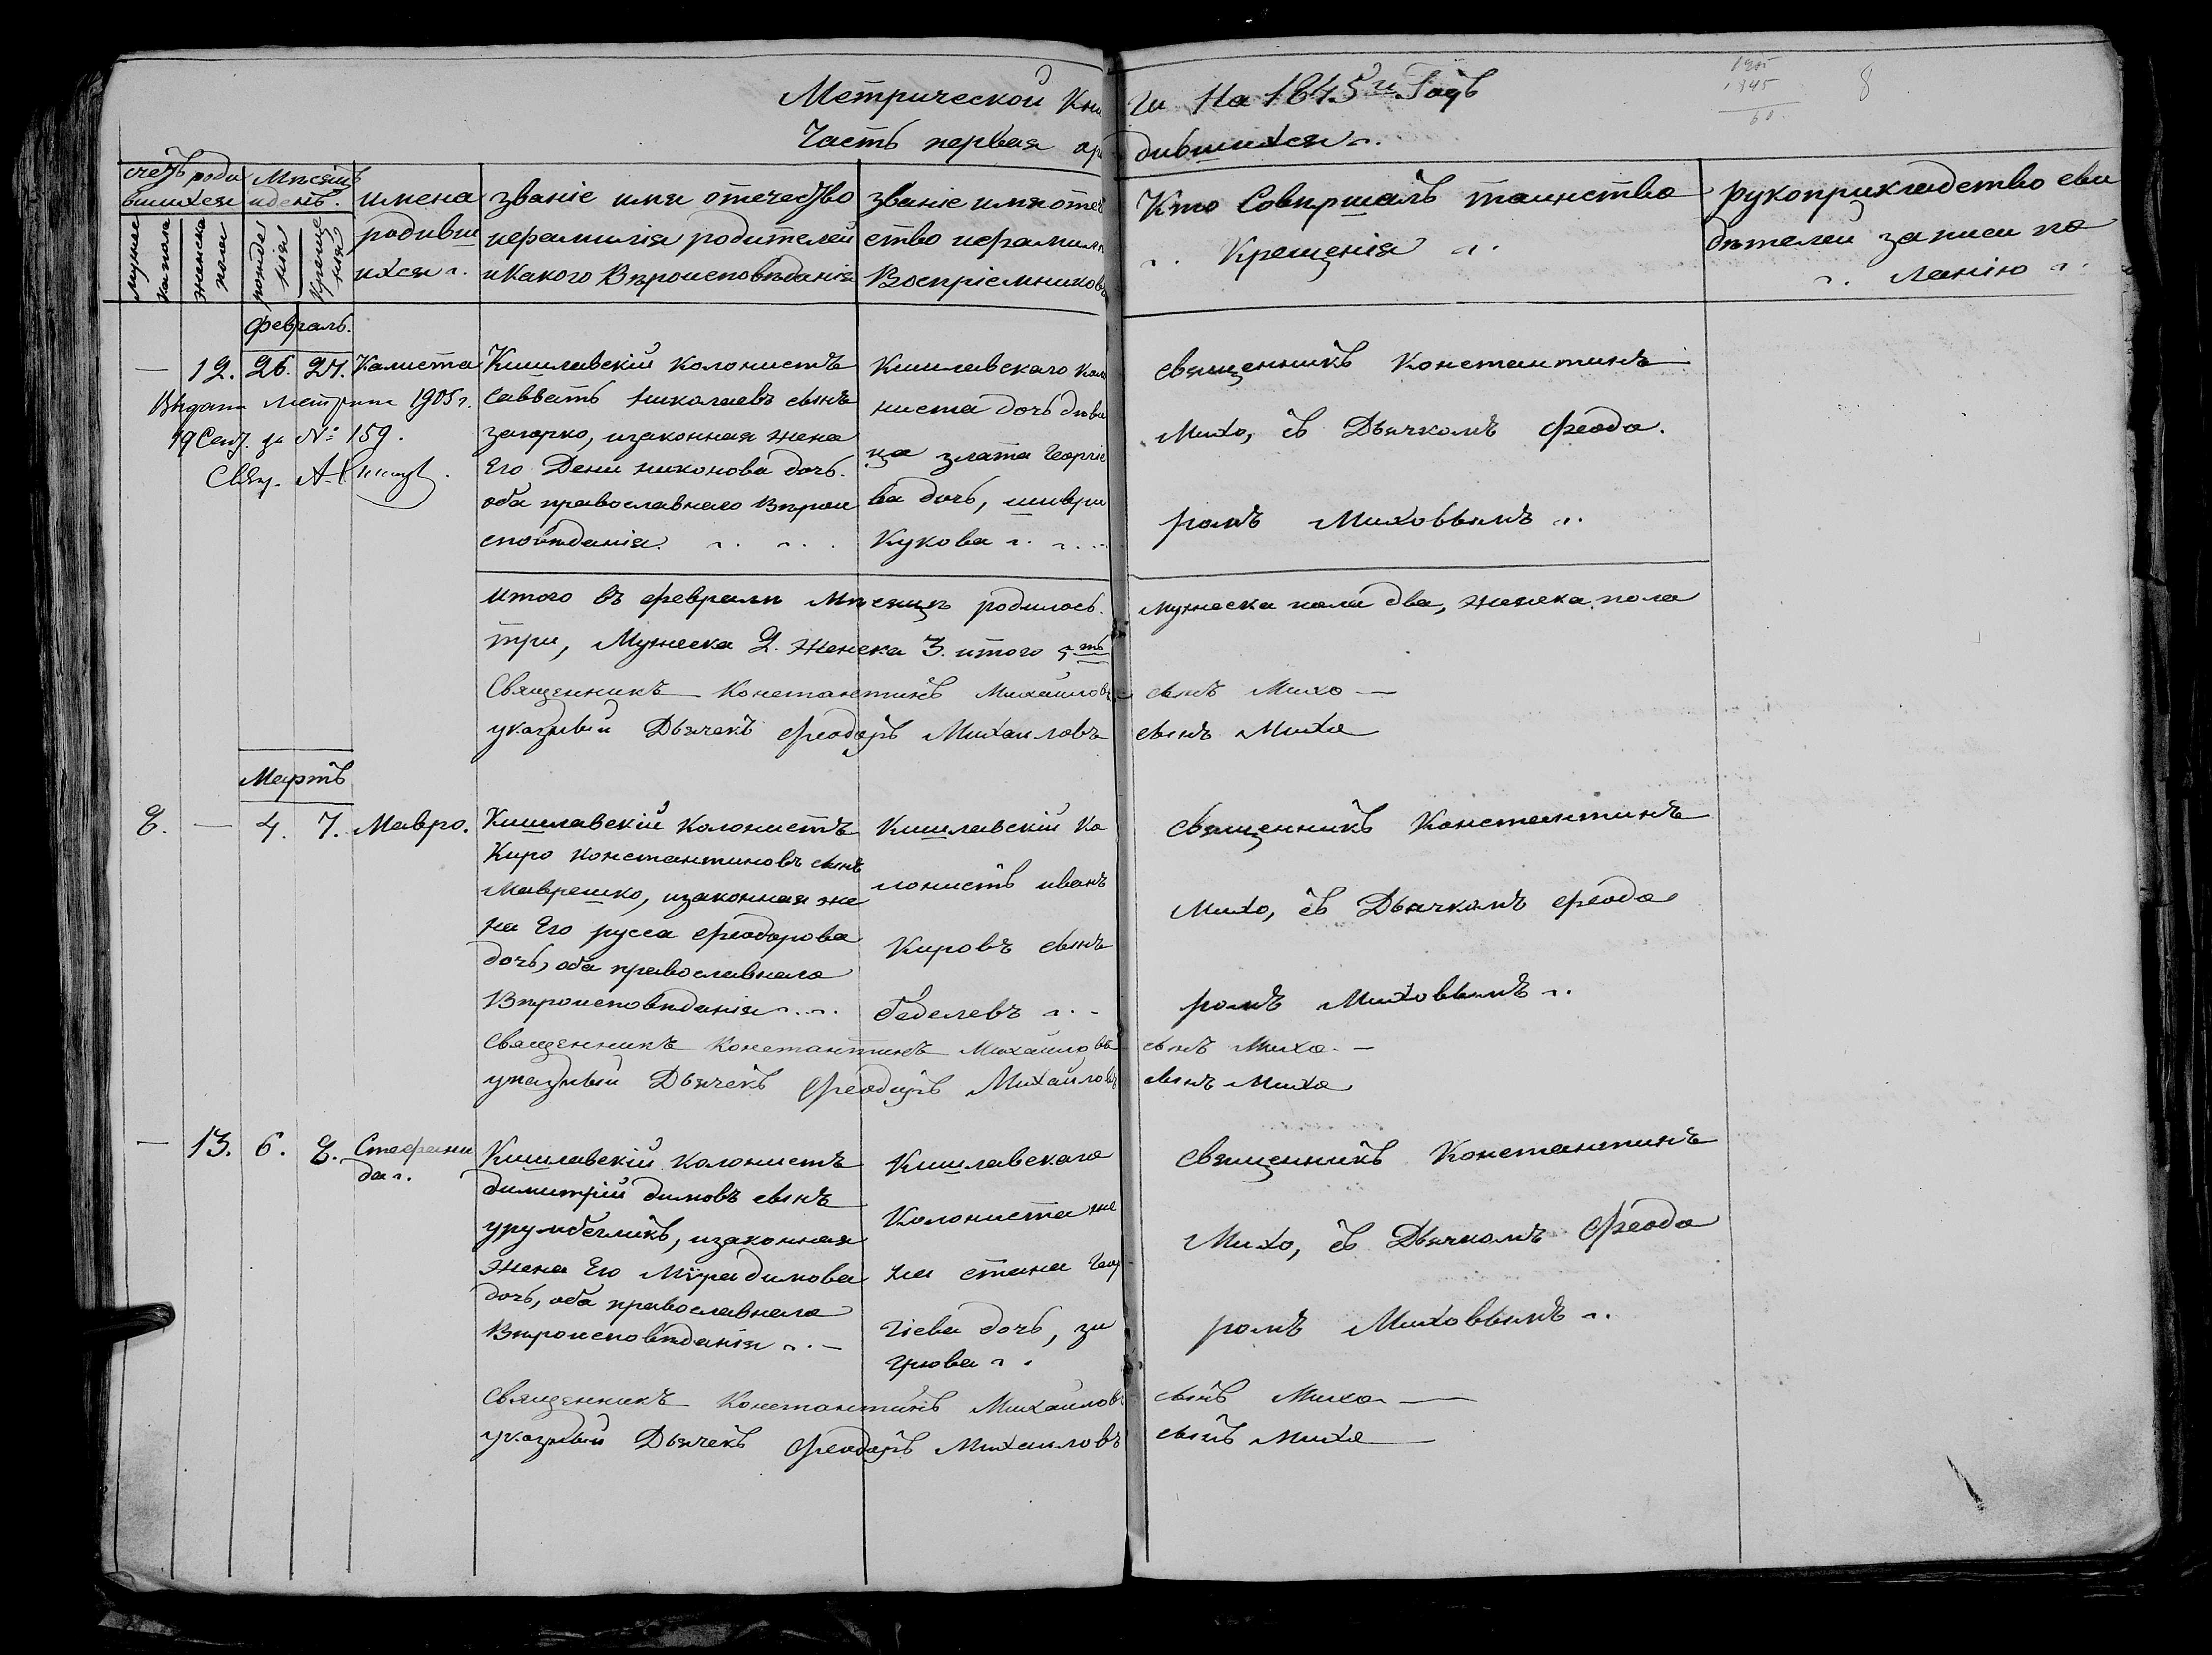 Метрической Книги На 1845й Годъ
Часть первая о родившихся
1905
1845
60.
8
счетъ роди
вшихся
Мѣсяцъ
и день.
мужес
ка пола
женска
пола
рожде
нія
Креще
нія
имена
родивш
ихся
званіе имя отечество
и фамилія родителей
и Какого Вѣроисповѣданія
званіе имя отеч
ство и фамилія
Воспріемниковъ
Кто Совершалъ таинство
Крещенія
рукоприкладство сви
дѣтелей записи по
ланію
Февраль.
— 12. 26. 27. Калиста
Выдана метрика 1905 г.
19 Сент. за № 159.
Свящ.
Кишлавскій колонистъ
Савватъ Николаевъ сынъ
загорко, и законная жена
Его Дени никонова дочь.
оба православнаго Вѣрои
сповѣданія.
Кишлавскаго коло
ниста дочь дѣви
ца злата Георгіе
ва дочь,
Кукова
священникъ Константинъ
Михо, съ Дьячкомъ Феодо.
ромъ Миховымъ
итого въ феврали мѣсяцѣ родилось. мужеска пола два, женска пола
три, Мужеска 2. Женска 3. итого 5ть
Священникъ Константинъ Михаиловъ сынъ Михо —
указный Дьячекъ Феодоръ Михаиловъ сынъ Михо
Мартъ
8. — 4. 7. Мавро.
Кишлавскій колонистъ
Киро константиновъ сынъ
Маврешко, и законная же
на Его русса Феодорова
дочь, оба православнаго
Вѣроисповѣданія
Кишлавскій ко
лонистъ иванъ
Кировъ сынъ
Гаделевъ
священникъ Константинъ
Михо, съ Дьячкомъ Феодо
ромъ Миховымъ
Священникъ Константинъ Михаиловъ сынъ Михо —
указный Дьячекъ Феодоръ Михаиловъ сынъ Михо
— 13. 6. 8. Стефани
да
Кишлавскій колонистъ
димитрій димовъ сынъ
урумбегликъ, и законная
жена Его Мѵра димова
дочь, оба православнаго
Вѣроисповѣданія —
Кишлавскаго
Колониста же
на стана Геор
гіева дочь, зи
гурова
священникъ Константинъ
Михо, съ Дьячкомъ Феодо
ромъ Миховымъ
Священникъ Константинъ Михаиловъ сынъ Михо —
указный Дьячекъ Феодоръ Михаиловъ сынъ Михо —